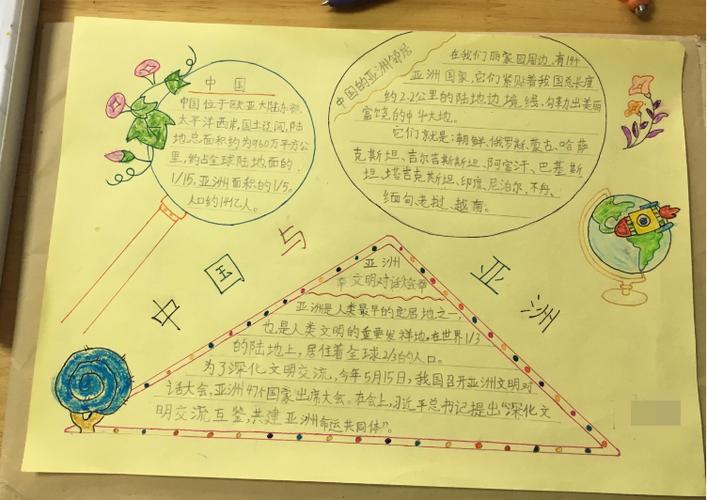 中国
中国位于欧亚大陆东部,
太平洋西岸,国土辽阔,陆
地总面积约为960万平方公
里,约占全球陆地面的,
1/15,亚洲面积的1/5。
人口约14亿人。
中国的亚洲邻居
在我们丽家园周边,有14个
亚洲国家,它们紧贴着我国总长度
约2.2公里的陆地边境线,勾勒出美丽
富饶的中华大地。
它们就是:朝鲜、俄罗斯、蒙古、哈萨
克斯坦、吉尔吉斯斯坦、阿富汗、巴基斯
坦、塔吉克斯坦、印度、尼泊尔、不丹、
缅甸、老挝、越南。
中国与
亚洲
亚洲
文明对话大会
亚洲是人类最早的定居地之一,
也是人类文明的重要发祥地,在世界1/3
的陆地上,居住着全球2/3的人口。
为了深化文明交流,今年5月15日,我国召开亚洲文明对
话大会,亚洲47个国家出席大会。在会上,习近平总书记提出“深化文
明交流互鉴,共建亚洲命运共同体”。